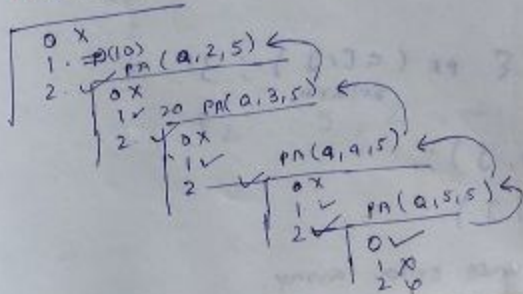 0 X
1. ⇒P(10)
2. ✓ PA(a,2,5)
0X
1✓ 20 PA(a,3,5)
2 ✓
0X
1✓
2 ✓ PA(a,4,5)
0X
1✓
2✓ PA(a,5,5)
0✓
1 X
2